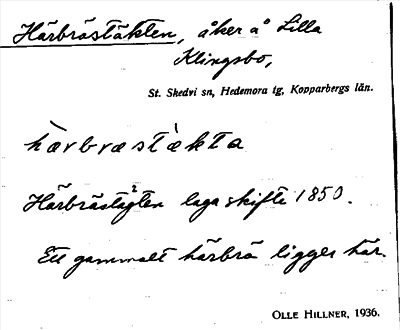 Härbrästäkten, åker å Lilla
Klingsbo,
St. Skedvi sn, Hedemora tg, Kopparbergs län.
hàrvbræstǽkta
Härbrästägten laga skifte 1850.
Ett gammalt härbrä ligger här.
OLLE HILLNER, 1936.